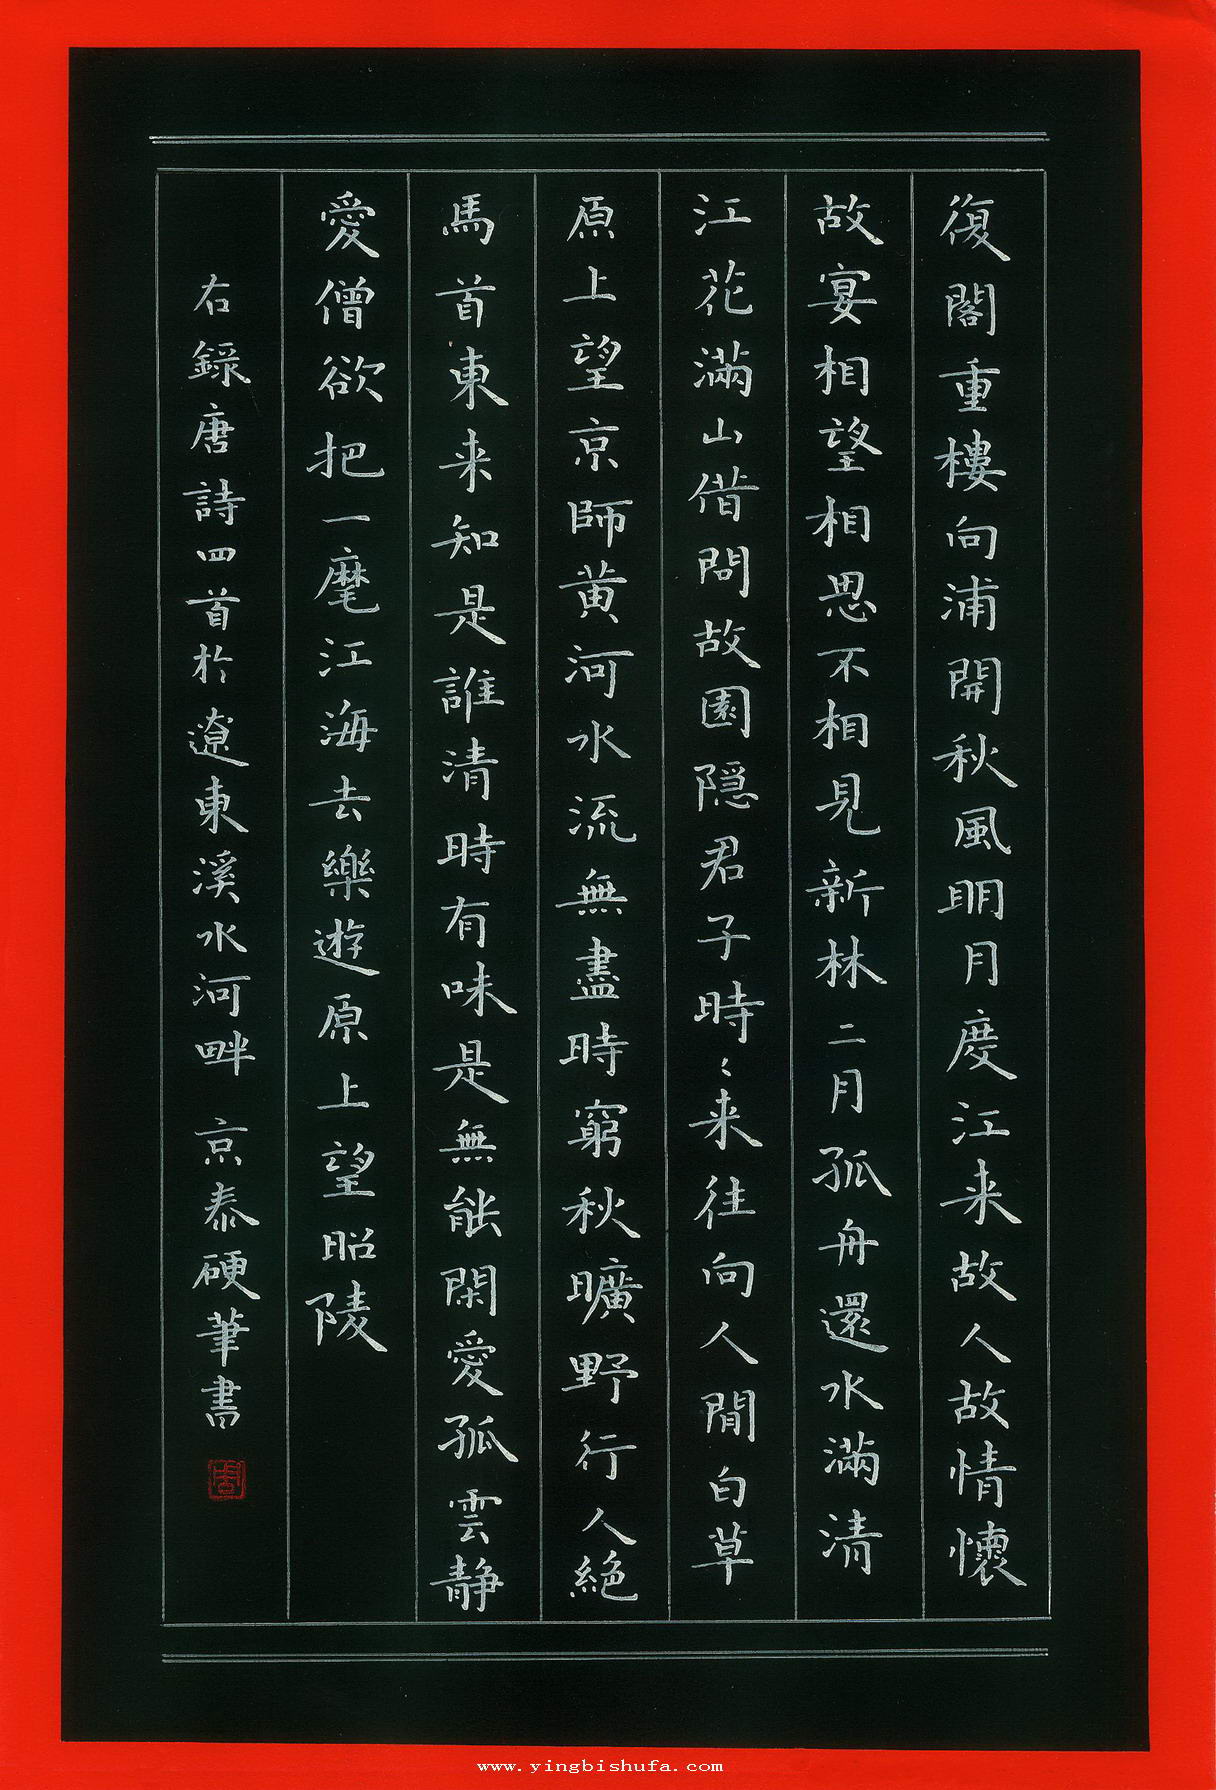 復閣重樓向浦開秋風明月度江来故人故情懷
故宴相望相思不相見新林二月孤舟還水滿清
江花滿山借問故園隱君子時々来往向人間白草
原上望京師黄河水流無盡時窮秋曠野行人絶
馬首東来知是誰清時有味是無能閑愛孤雲静
愛僧欲把一麾江海去樂遊原上望昭陵
右録唐詩四首於遼東溪水河畔 京泰硬筆書
www.yingbishufa.com